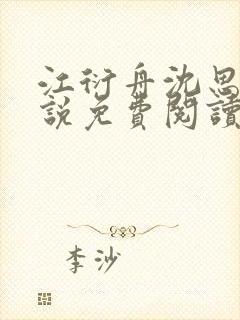 江衍舟沈思
說免費閱讀
李沙